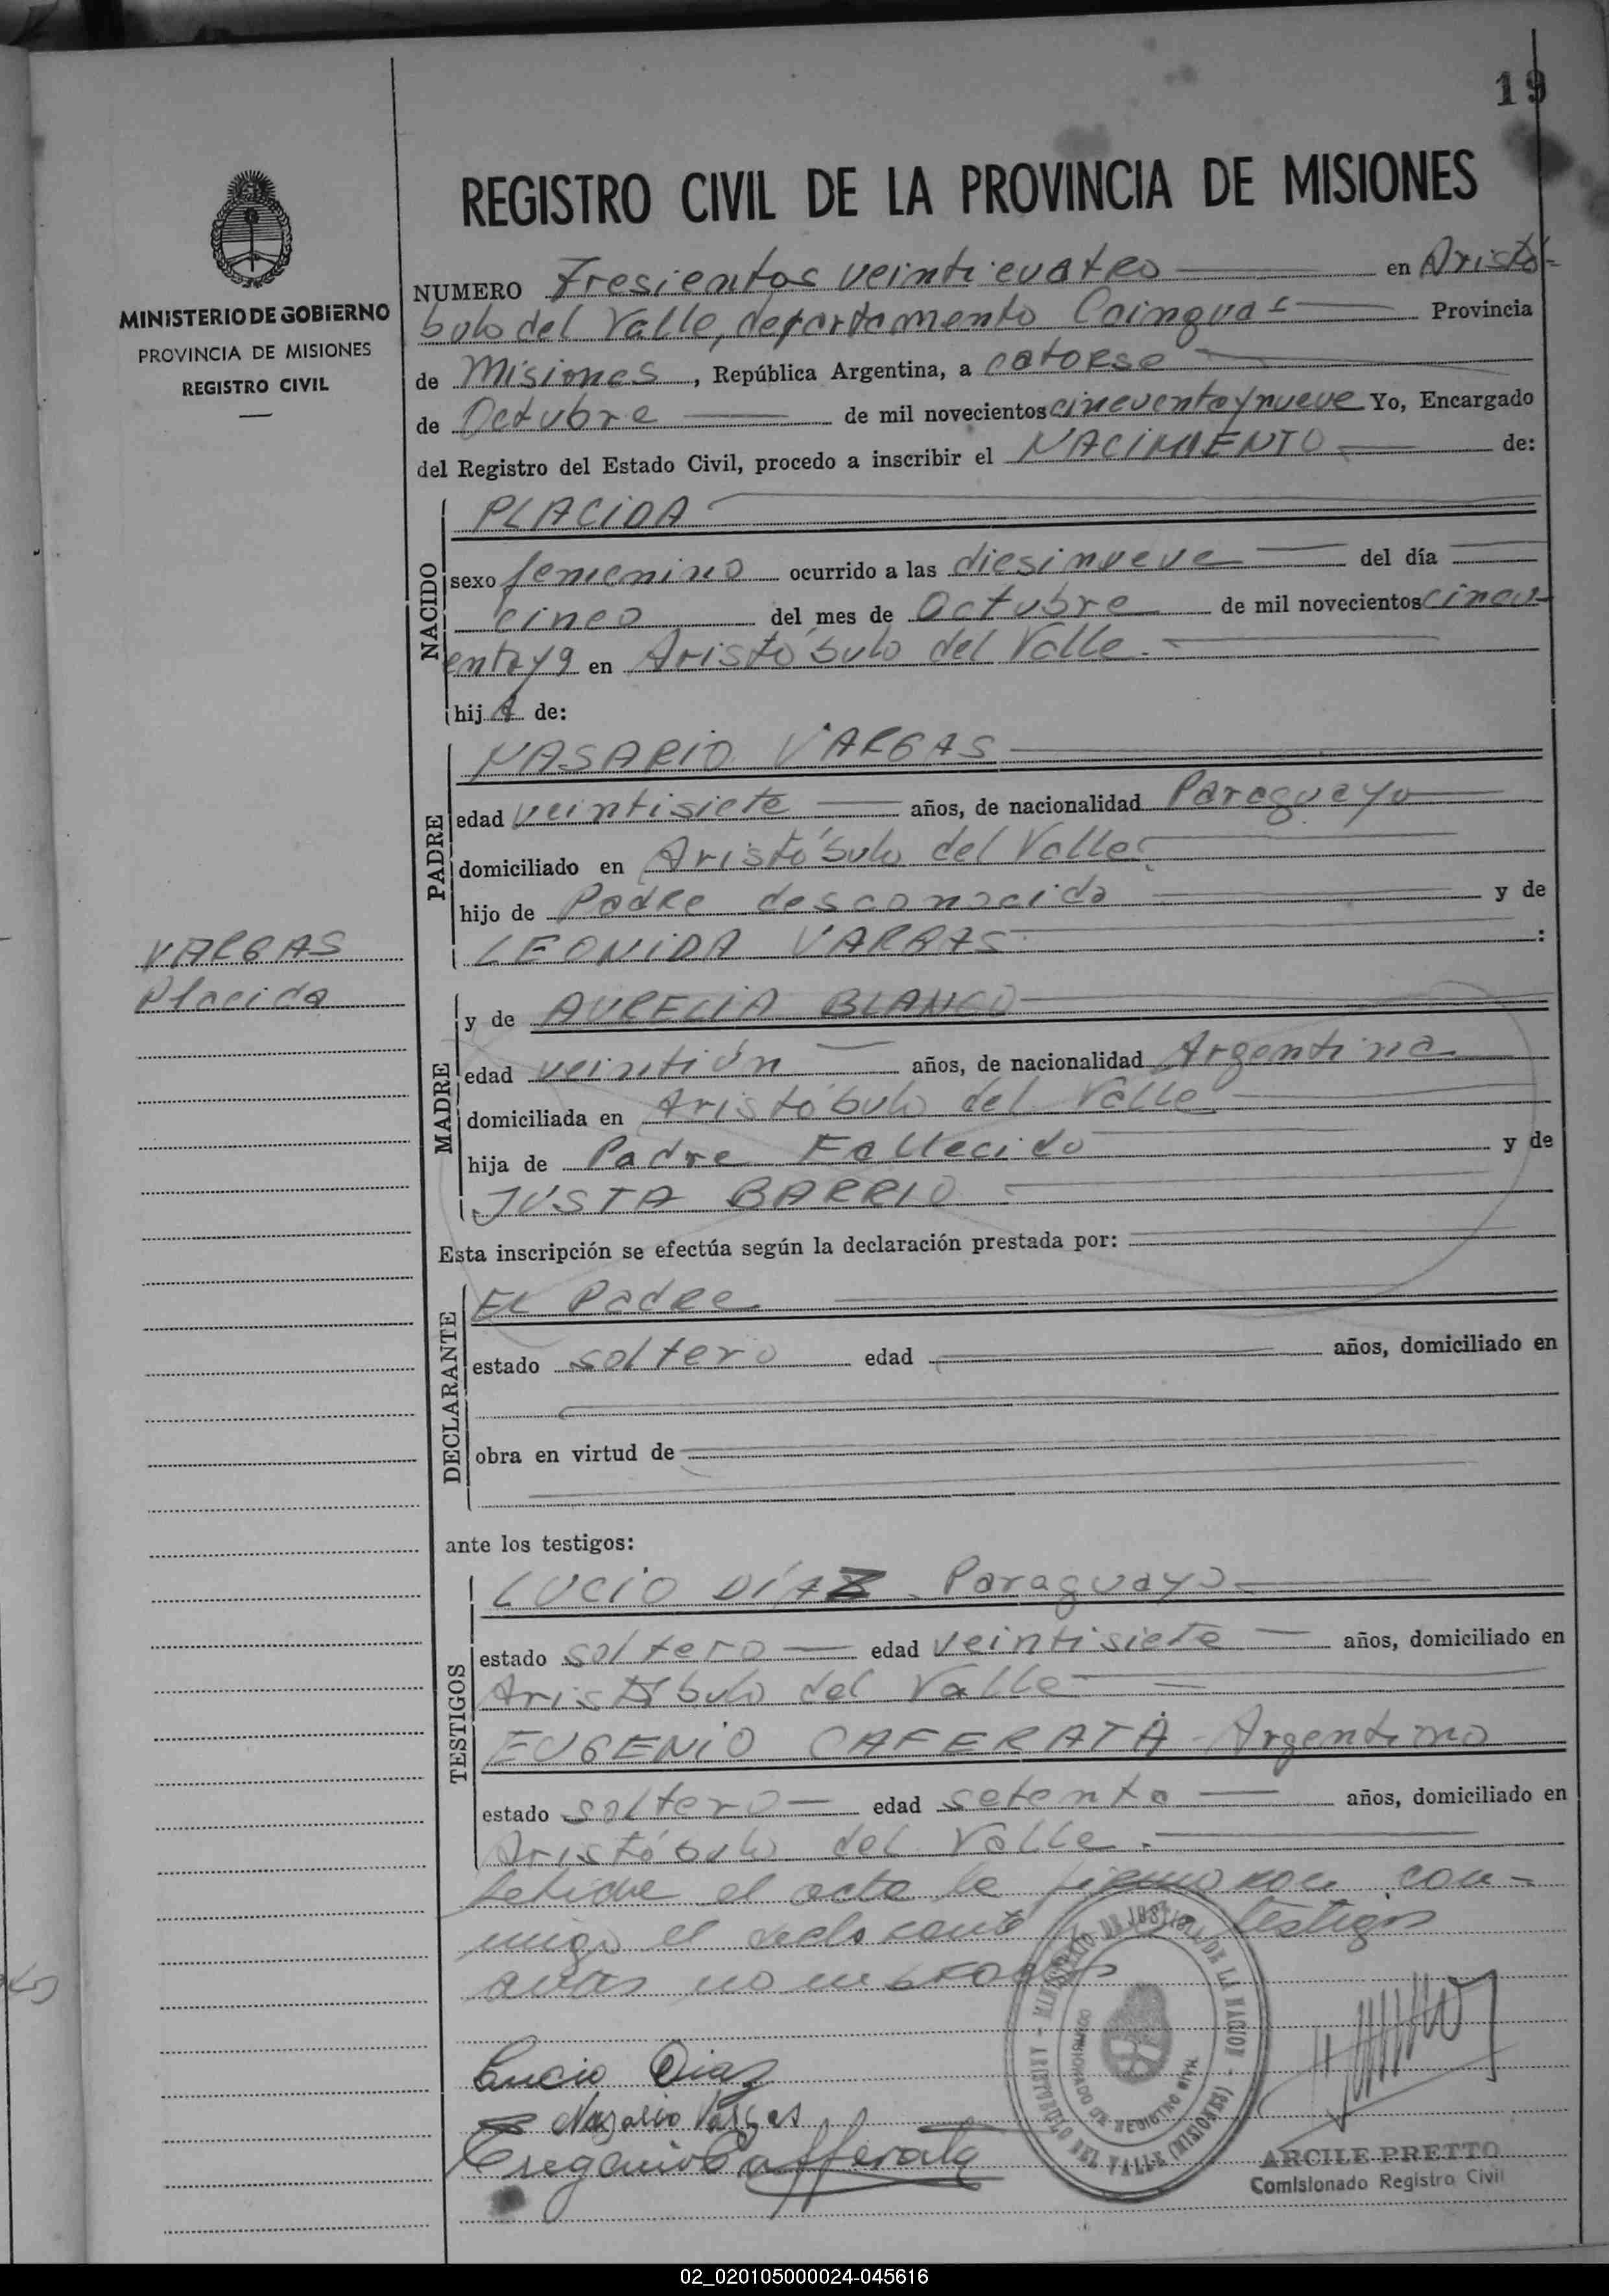 19
REGISTRO CIVIL DE LA PROVINCIA DE MISIONES
MINISTERIO DE GOBIERNO
PROVINCIA DE MISIONES
REGISTRO CIVIL
NUMERO Tresientos veinticuatro en Aristó-
bulo del Valle, departamento Cainguas Provincia
de Misiones, República Argentina, a catorse
de Octubre de mil novecientos cincuenta y nueve Yo, Encargado
del Registro del Estado Civil, procedo a inscribir el NACIMIENTO de:
NACIDO
PLACIDA
sexo femenino ocurrido a las diesinueve del día
cinco del mes de Octubre de mil novecientos cincu-
enta y 9 en Aristóbulo del Valle.
hija de:
PADRE
NASARIO VARGAS
edad veintisiete años, de nacionalidad Paraguayo
domiciliado en Aristóbulo del Valle
hijo de Padre desconocido y de
LEONIDA VARGAS :
VARGAS
Placida
MADRE
y de AURELIA BLANCO
edad veintiún años, de nacionalidad Argentina
domiciliada en Aristóbulo del Valle
hija de Padre Fallecido y de
JUSTA BARRIO
Esta inscripción se efectúa según la declaración prestada por:
DECLARANTE
EL Padre
estado soltero edad años, domiciliado en
obra en virtud de
ante los testigos:
TESTIGOS
LUCIO DÍAZ - Paraguayo
estado soltero edad veintisiete años, domiciliado en
Aristóbulo del Valle
EUGENIO CAFERATA - Argentino
estado soltero edad setenta años, domiciliado en
Aristóbulo del Valle.
el acta la firmaron con-
migo el declarante testigos
nombrados
MINISTERIO DE JUSTICIA DE LA NACION
ARISTOBULO DEL VALLE (MISIONES)
COMISIONADO DE REGISTRO CIVIL
Lucio Diaz
Nazario Vargas
Eugenio Cafferata
ARCILE PRETTO
Comisionado Registro Civil
02_020105000024-045616